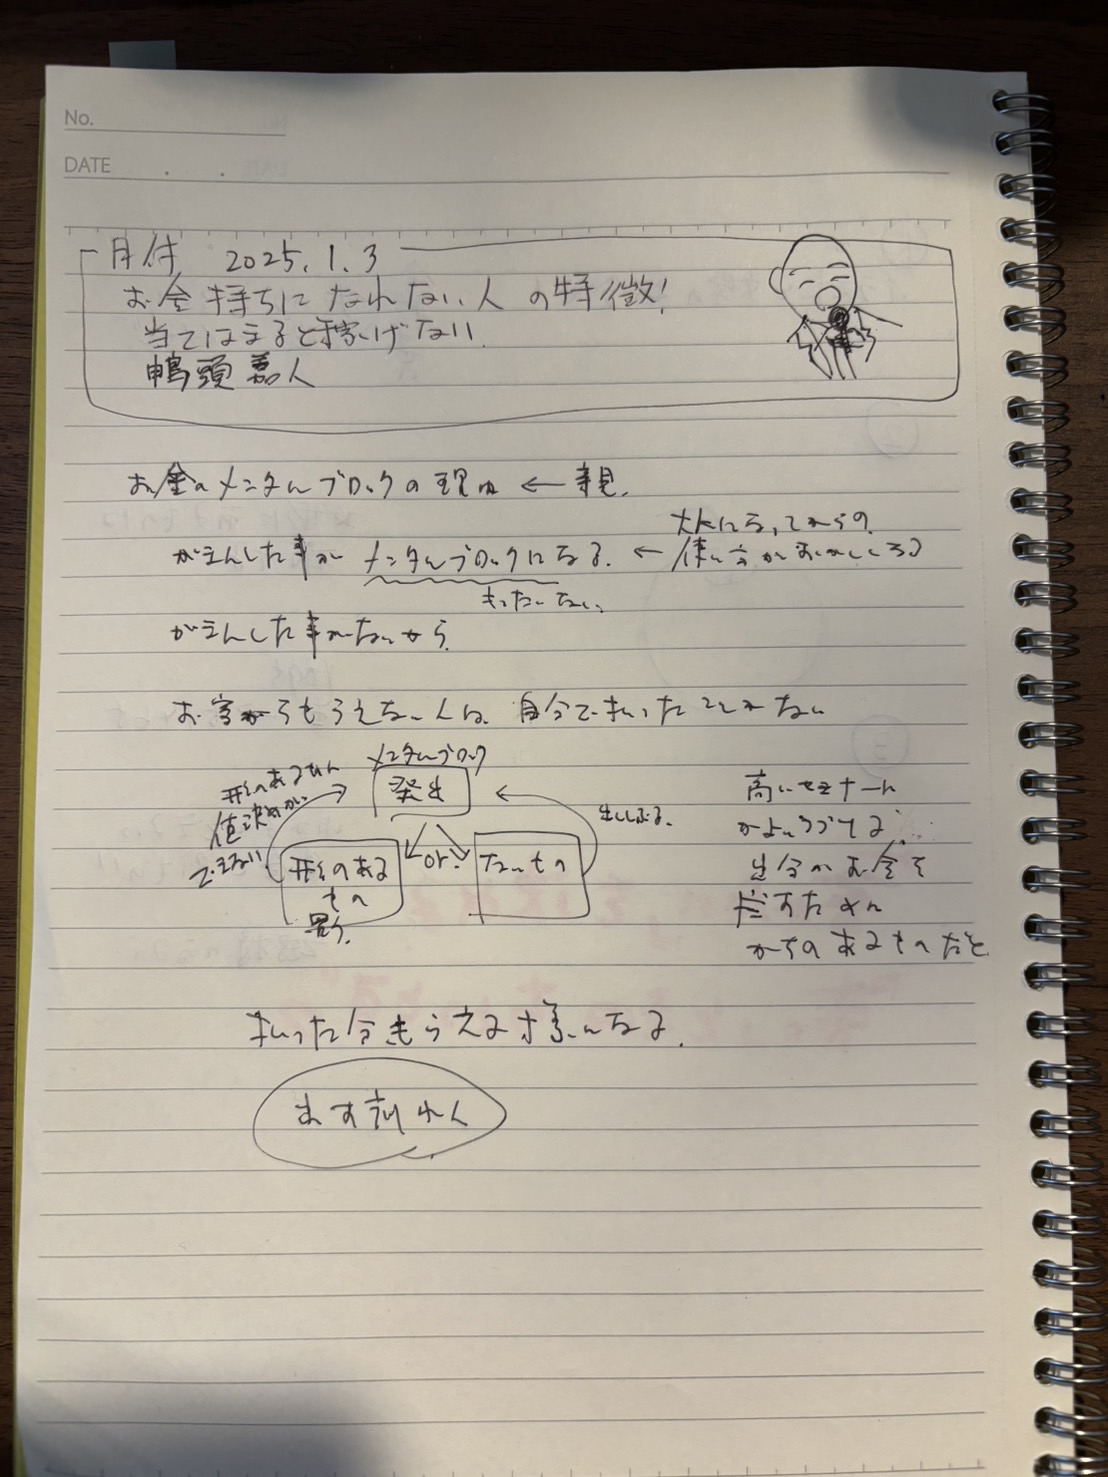 No.
DATE . .
日付 2025.1.3
お金持ちになれない人の特徴!
当てはまると稼げない
鴨頭嘉人
お金のメンタルブロックの理由 ← 親.
大人になってからの
がまんした事が メンタルブロックになる. ← 使い方がおかしくなる
もったいない.
がまんした事がないから.
お客からもらえない人は 自分で払ったことがない
メンタルブロック
発生
形のあるもん
値決めが
できない.
出ししぶる.
形のある
もの
買う.
or
ないもの
高いセミナーに
かよいつづける
自分がお金を
だすために
かちのあるものだと
払った分もらえる様になる.